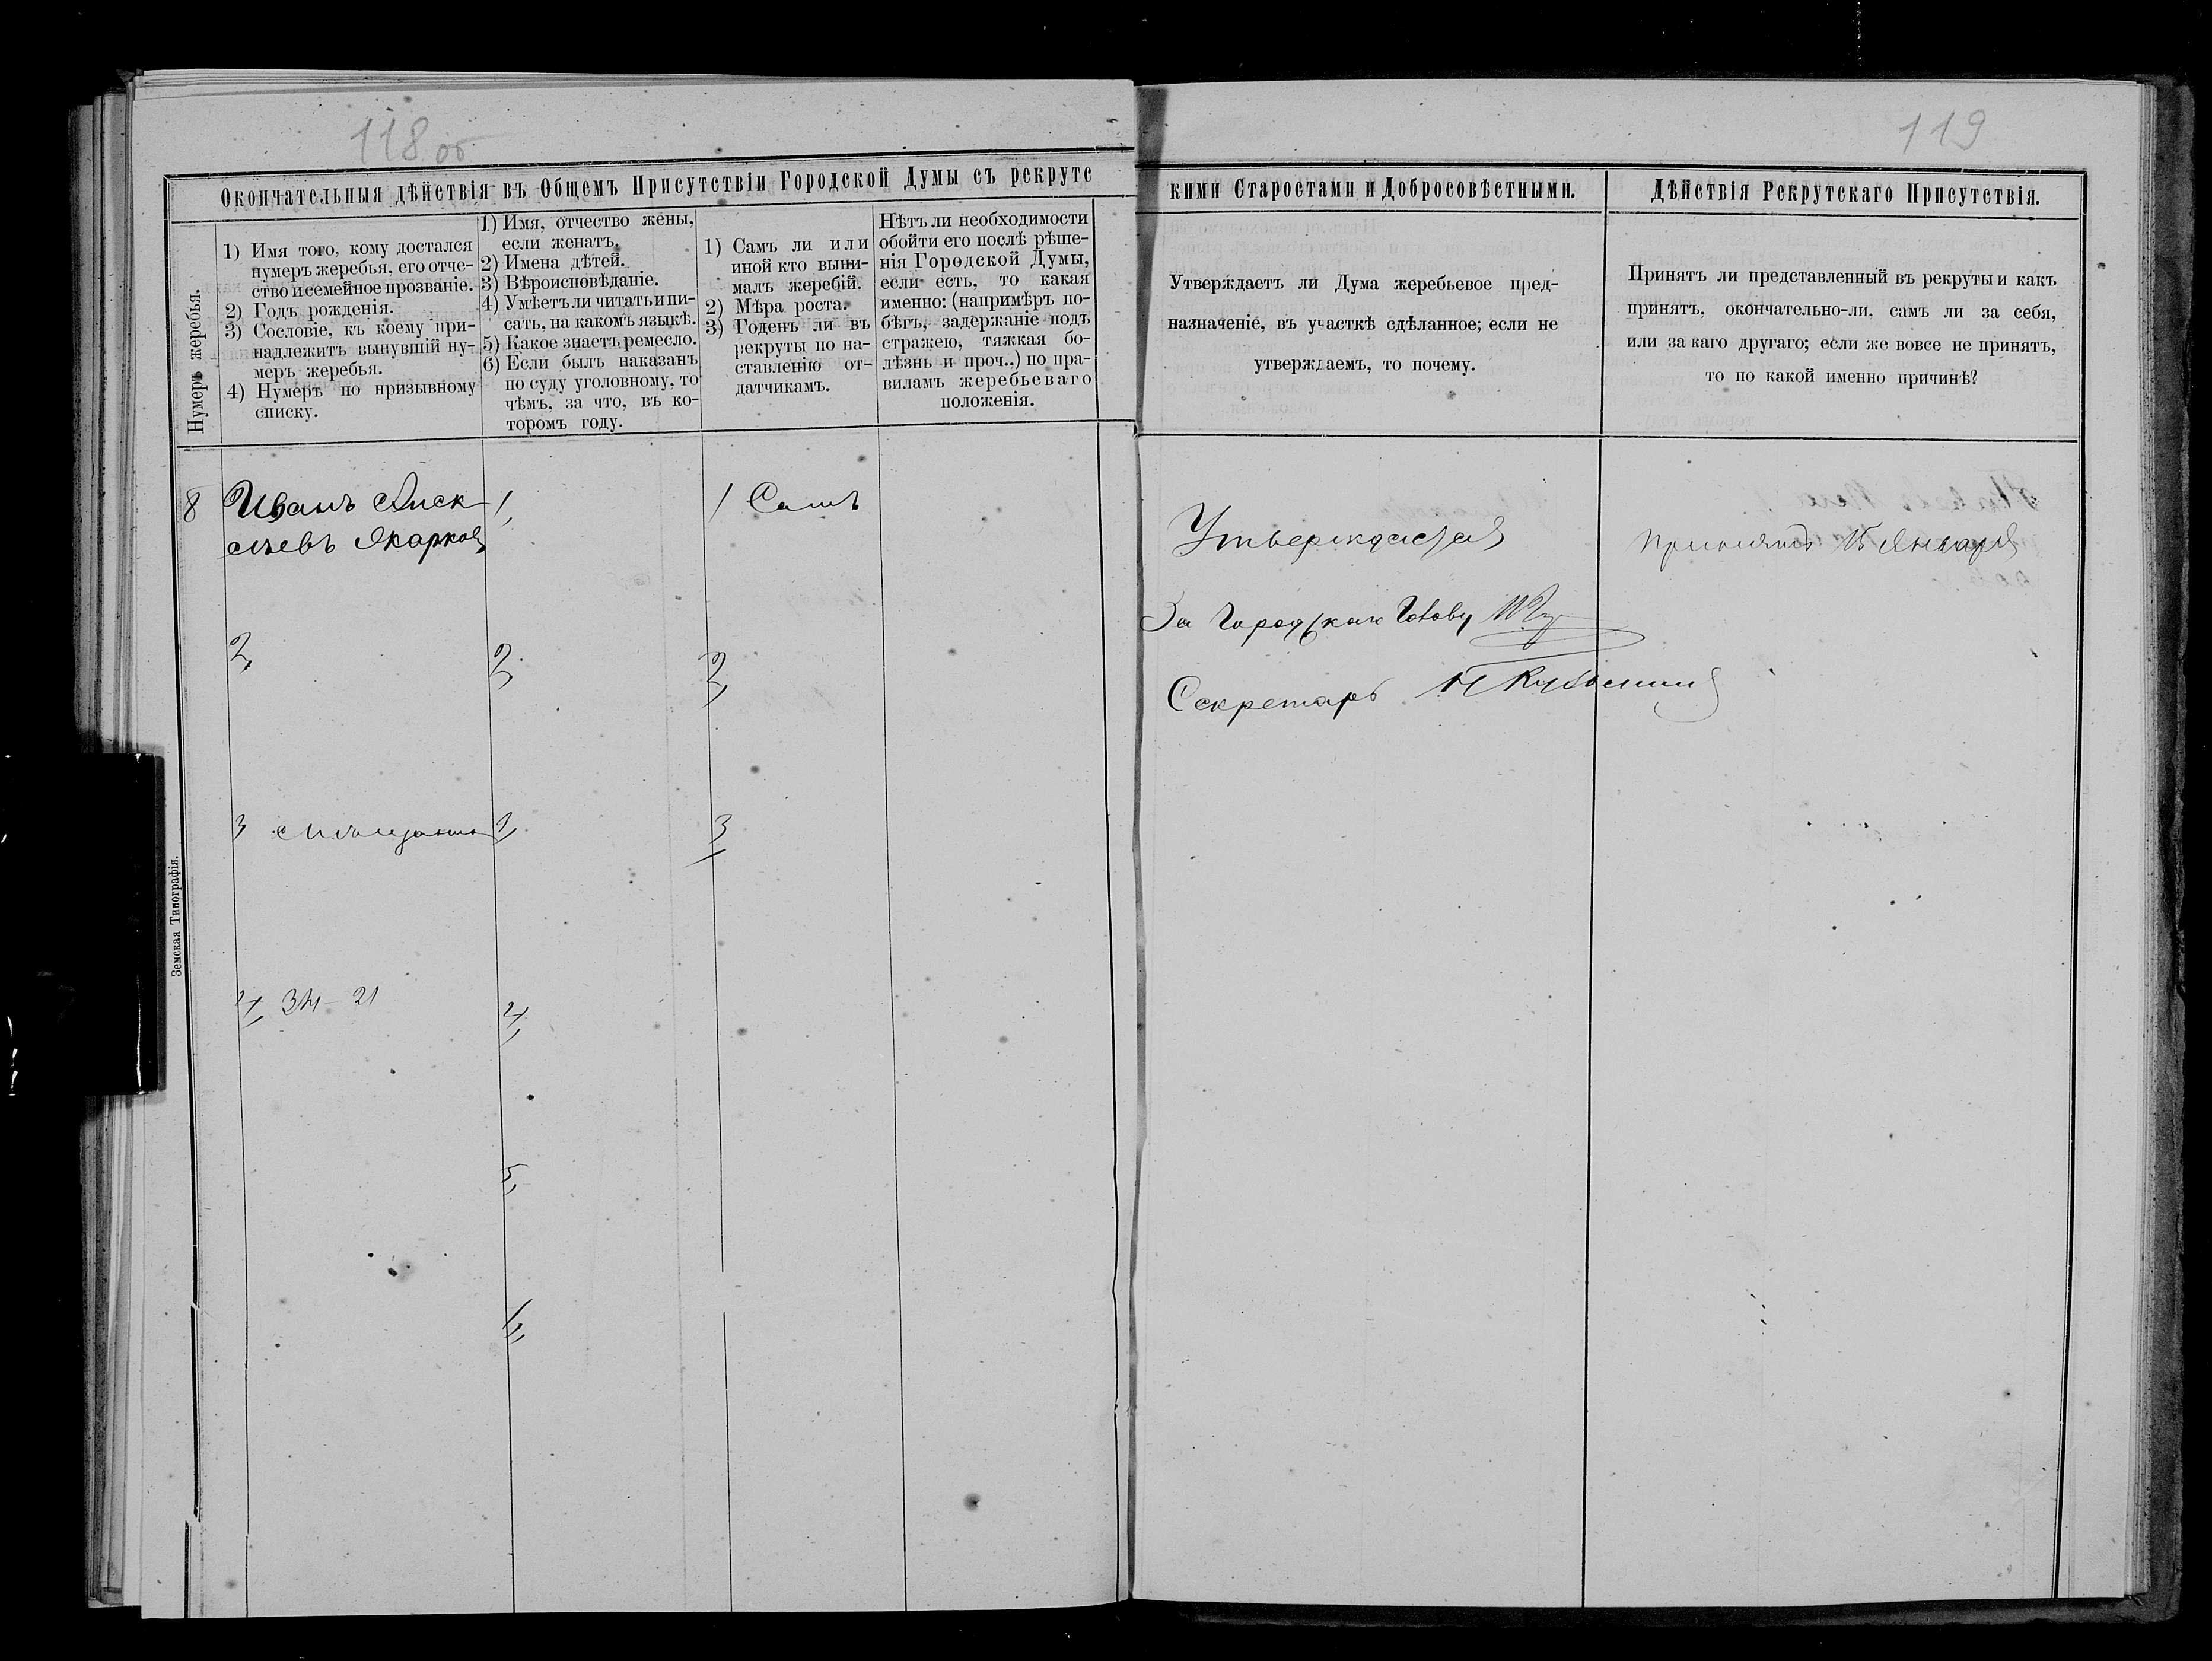 118 об
Окончательныя дѣйствія въ Общемъ Присутствіи Городской Думы съ рекрутс
Нумеръ жеребья.
1) Имя того, кому достался
нумеръ жеребья, его отче-
ство и семейное прозваніе.
2) Годъ рожденія.
3) Сословіе, къ коему при-
надлежитъ вынувшій ну-
меръ жеребья.
4) Нумеръ по призывному
списку.
1) Имя, отчество жены,
если женатъ.
2) Имена дѣтей.
3) Вѣроисповѣданіе.
4) Умѣетъ ли читать и пи-
сать, на какомъ языкѣ.
5) Какое знаетъ ремесло.
6) Если былъ наказанъ
по суду уголовному, то
чѣмъ, за что, въ ко-
торомъ году.
1) Самъ ли или
иной кто выни-
малъ жеребій.
2) Мѣра роста.
3) Годенъ ли въ
рекруты по на-
ставленію от-
датчикамъ.
Нѣтъ ли необходимости
обойти его послѣ рѣше-
нія Городской Думы,
если есть, то какая
именно: (напримѣръ по-
бѣгъ, задержаніе подъ
стражею, тяжкая бо-
лѣзнь и проч.,) по пра-
виламъ жеребьеваго
положенія.
8 Иванъ Алек
сѣевъ
2,
3
4, 34 — 21
1,
2,
3,
4,
5,
6,
1 Самъ
2,
3,
Земская Типографія.
119
кими Старостами и Добросовѣстными.
Утверждаетъ ли Дума жеребьевое пред-
назначеніе, въ участкѣ сдѣланное; если не
утверждаемъ, то почему.
Утверждается
За Городскаго Голову
Секретарь
Дѣйствія Рекрутскаго Присутствія.
Принятъ ли представленный въ рекруты и какъ
принятъ, окончательно-ли, самъ ли за себя,
или за каго другаго; если же вовсе не принятъ,
то по какой именно причинѣ?
принятъ 15 Января